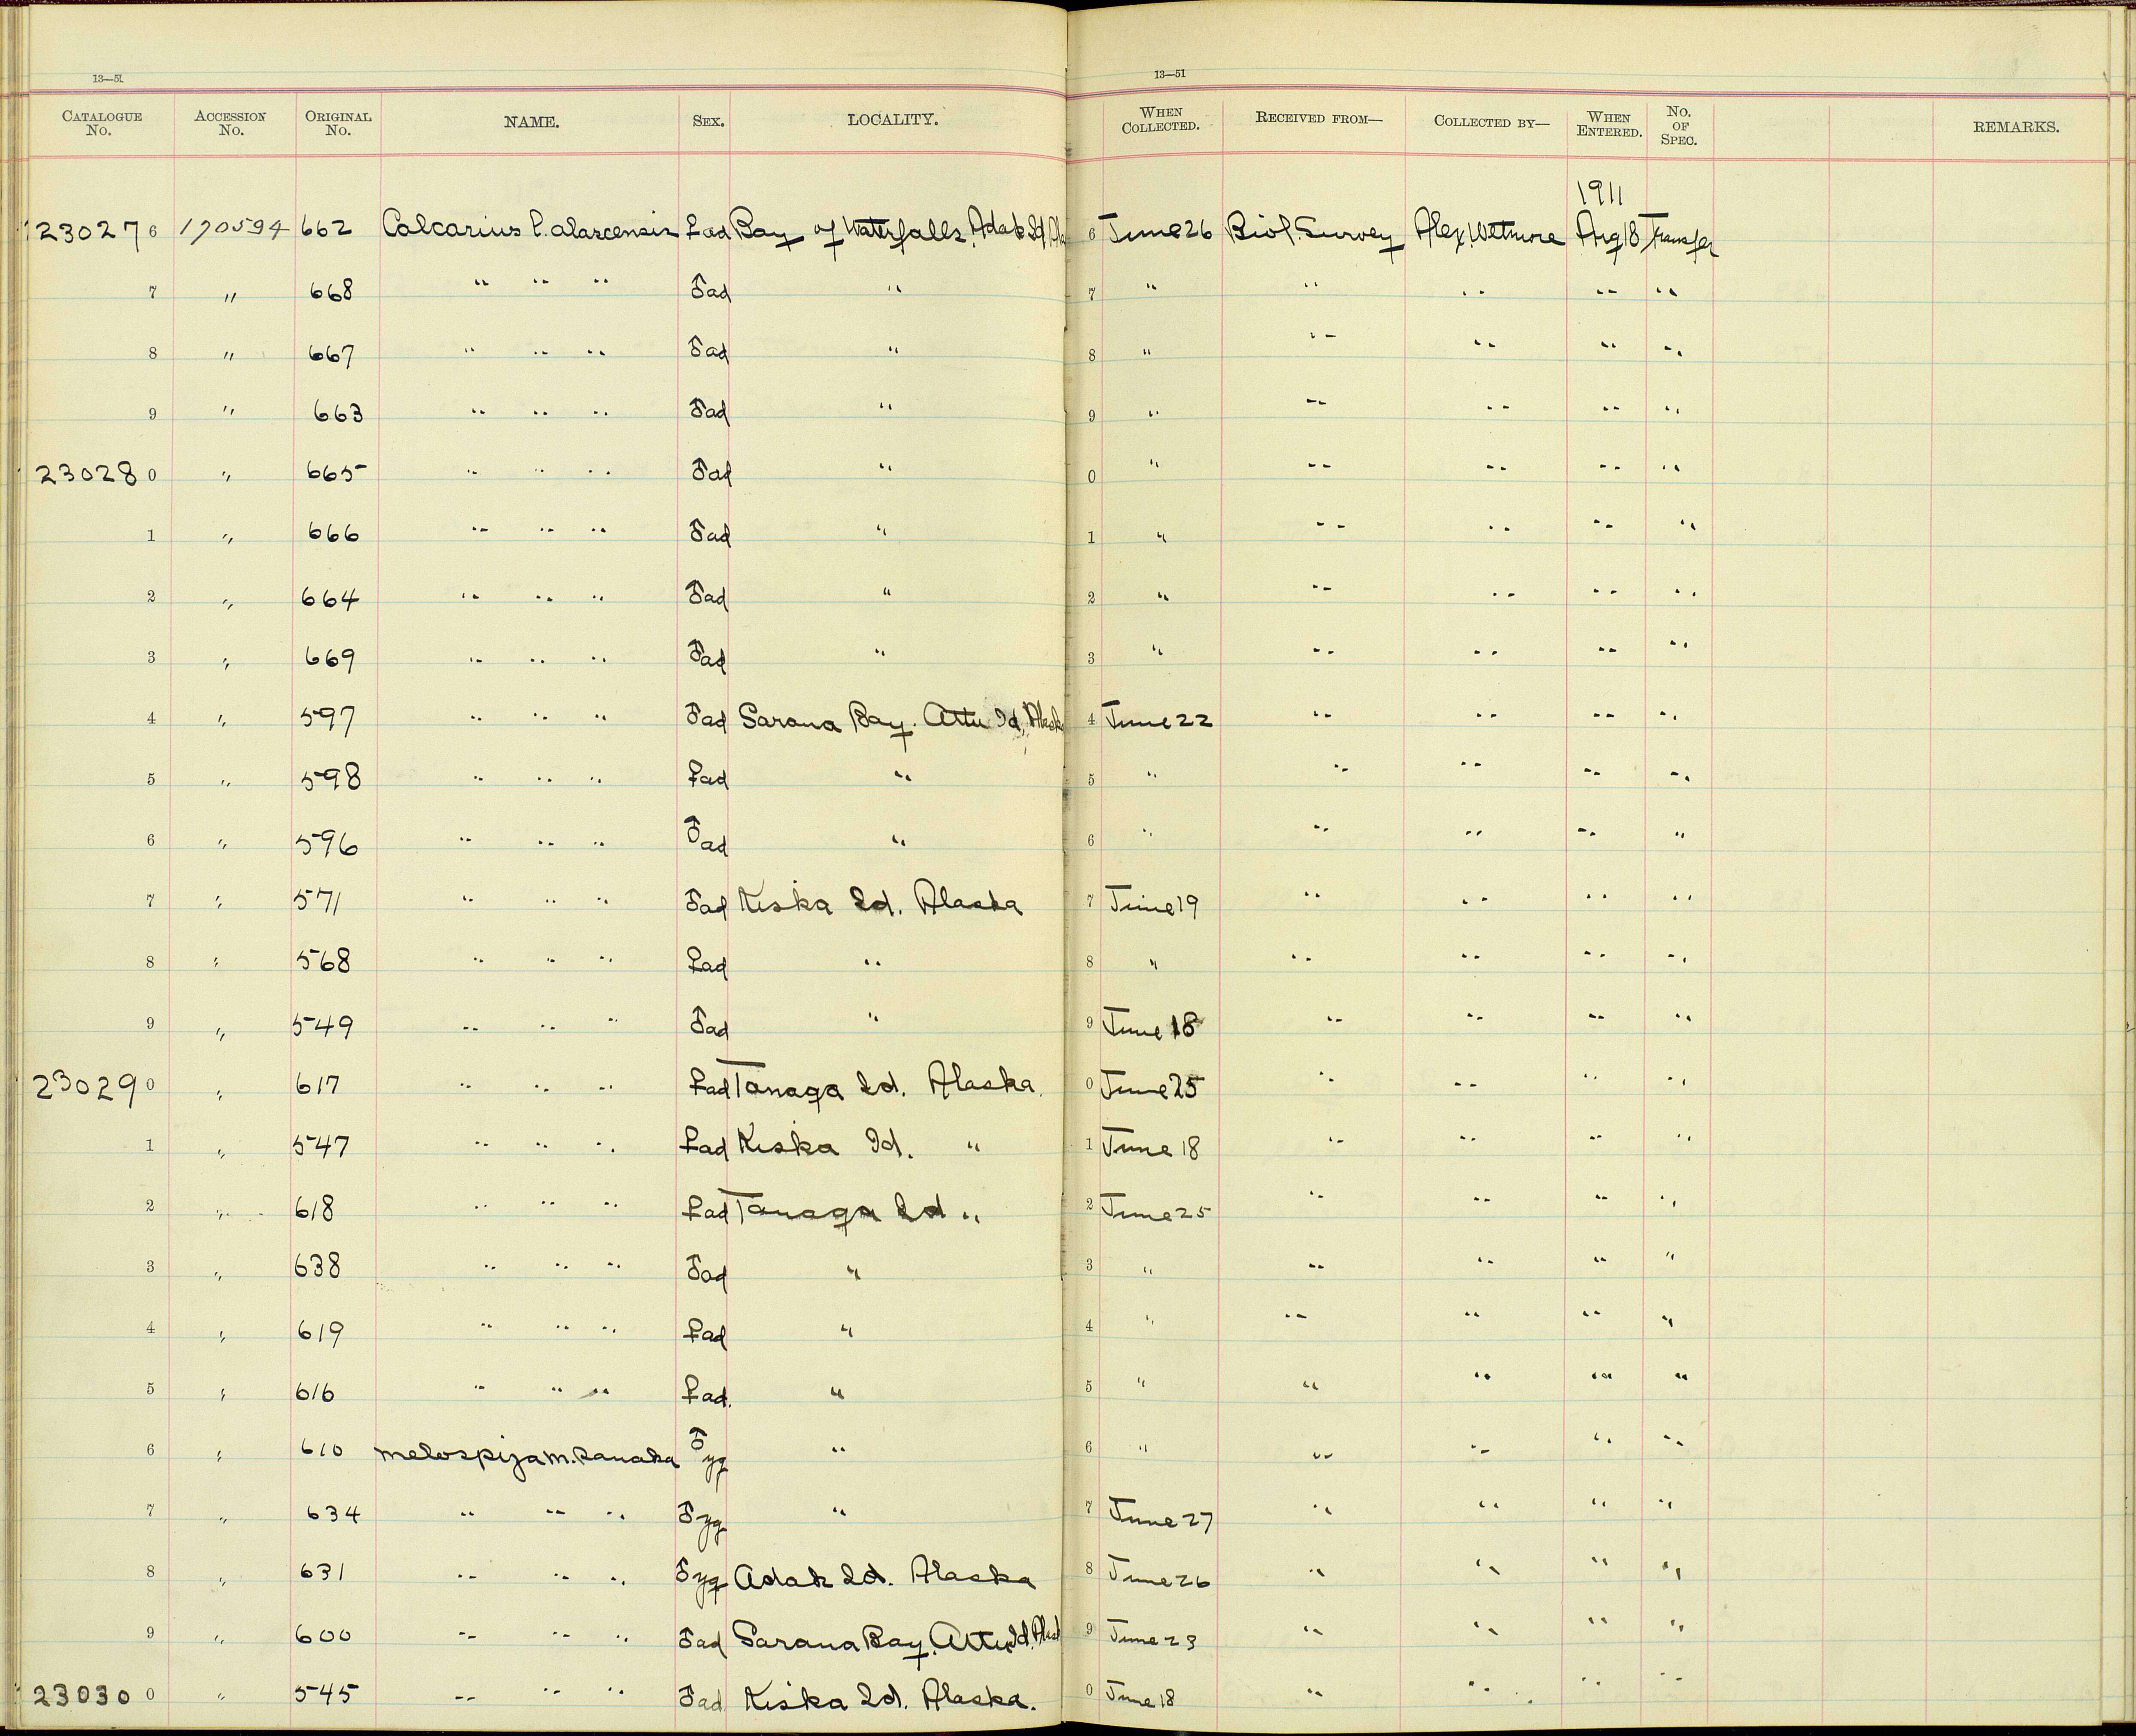 13—51 13—51
CATALOGUE No. ACCESSION No. ORIGINAL No. NAME. SEX. LOCALITY. WHEN COLLECTED. RECEIVED FROM— COLLECTED BY— WHEN ENTERED. No. OF SPEC. REMARKS.
1911
230276 170594 662 Calcarius l. alascensis ♀ad Bay of Waterfalls, Adak Id, Ala 6 June 26 Biol. Survey Alex Wetmore Aug 18 Transfer
7 " 668 " " " ♂ad " 7 " " " " "
8 " 667 " " " ♂ad " 8 " " " " "
9 " 663 " " " ♂ad " 9 " " " " "
230280 " 665 " " " ♂ad " 0 " " " " "
1 " 666 " " " ♂ad " 1 " " " " "
2 " 664 " " " ♂ad " 2 " " " " "
3 " 669 " " " ♂ad " 3 " " " " "
4 " 597 " " " ♂ad Sarana Bay. Attu Id, Alaska 4 June 22 " " " "
5 " 598 " " " ♀ad " 5 " " " " "
6 " 596 " " " ♂ad " 6 " " " " "
7 " 571 " " " ♂ad Kiska Id. Alaska 7 June 19 " " " "
8 " 568 " " " ♀ad " 8 " " " " "
9 " 549 " " " ♂ad " 9 June 18 " " " "
230290 " 617 " " " ♀ad Tanaga Id. Alaska. 0 June 25 " " " "
1 " 547 " " " ♀ad Kiska Id. " 1 June 18 " " " "
2 " 618 " " " ♀ad Tanaga Id " 2 June 25 " " " "
3 " 638 " " " ♂ad " 3 " " " " "
4 " 619 " " " ♀ad " 4 " " " " "
5 " 616 " " " ♀ad. " 5 " " " " "
6 " 610 Melospiza m. sanaka ♂yg " 6 " " " " "
7 " 634 " " " ♂yg " 7 June 27 " " " "
8 " 631 " " " ♂yg Adak Id. Alaska 8 June 26 " " " "
9 " 600 " " " ♂ad Sarana Bay, Attu Id, Alask 9 June 23 " " " "
230300 " 545 " " " ♂ad Kiska Id. Alaska. 0 June 18 " " " "